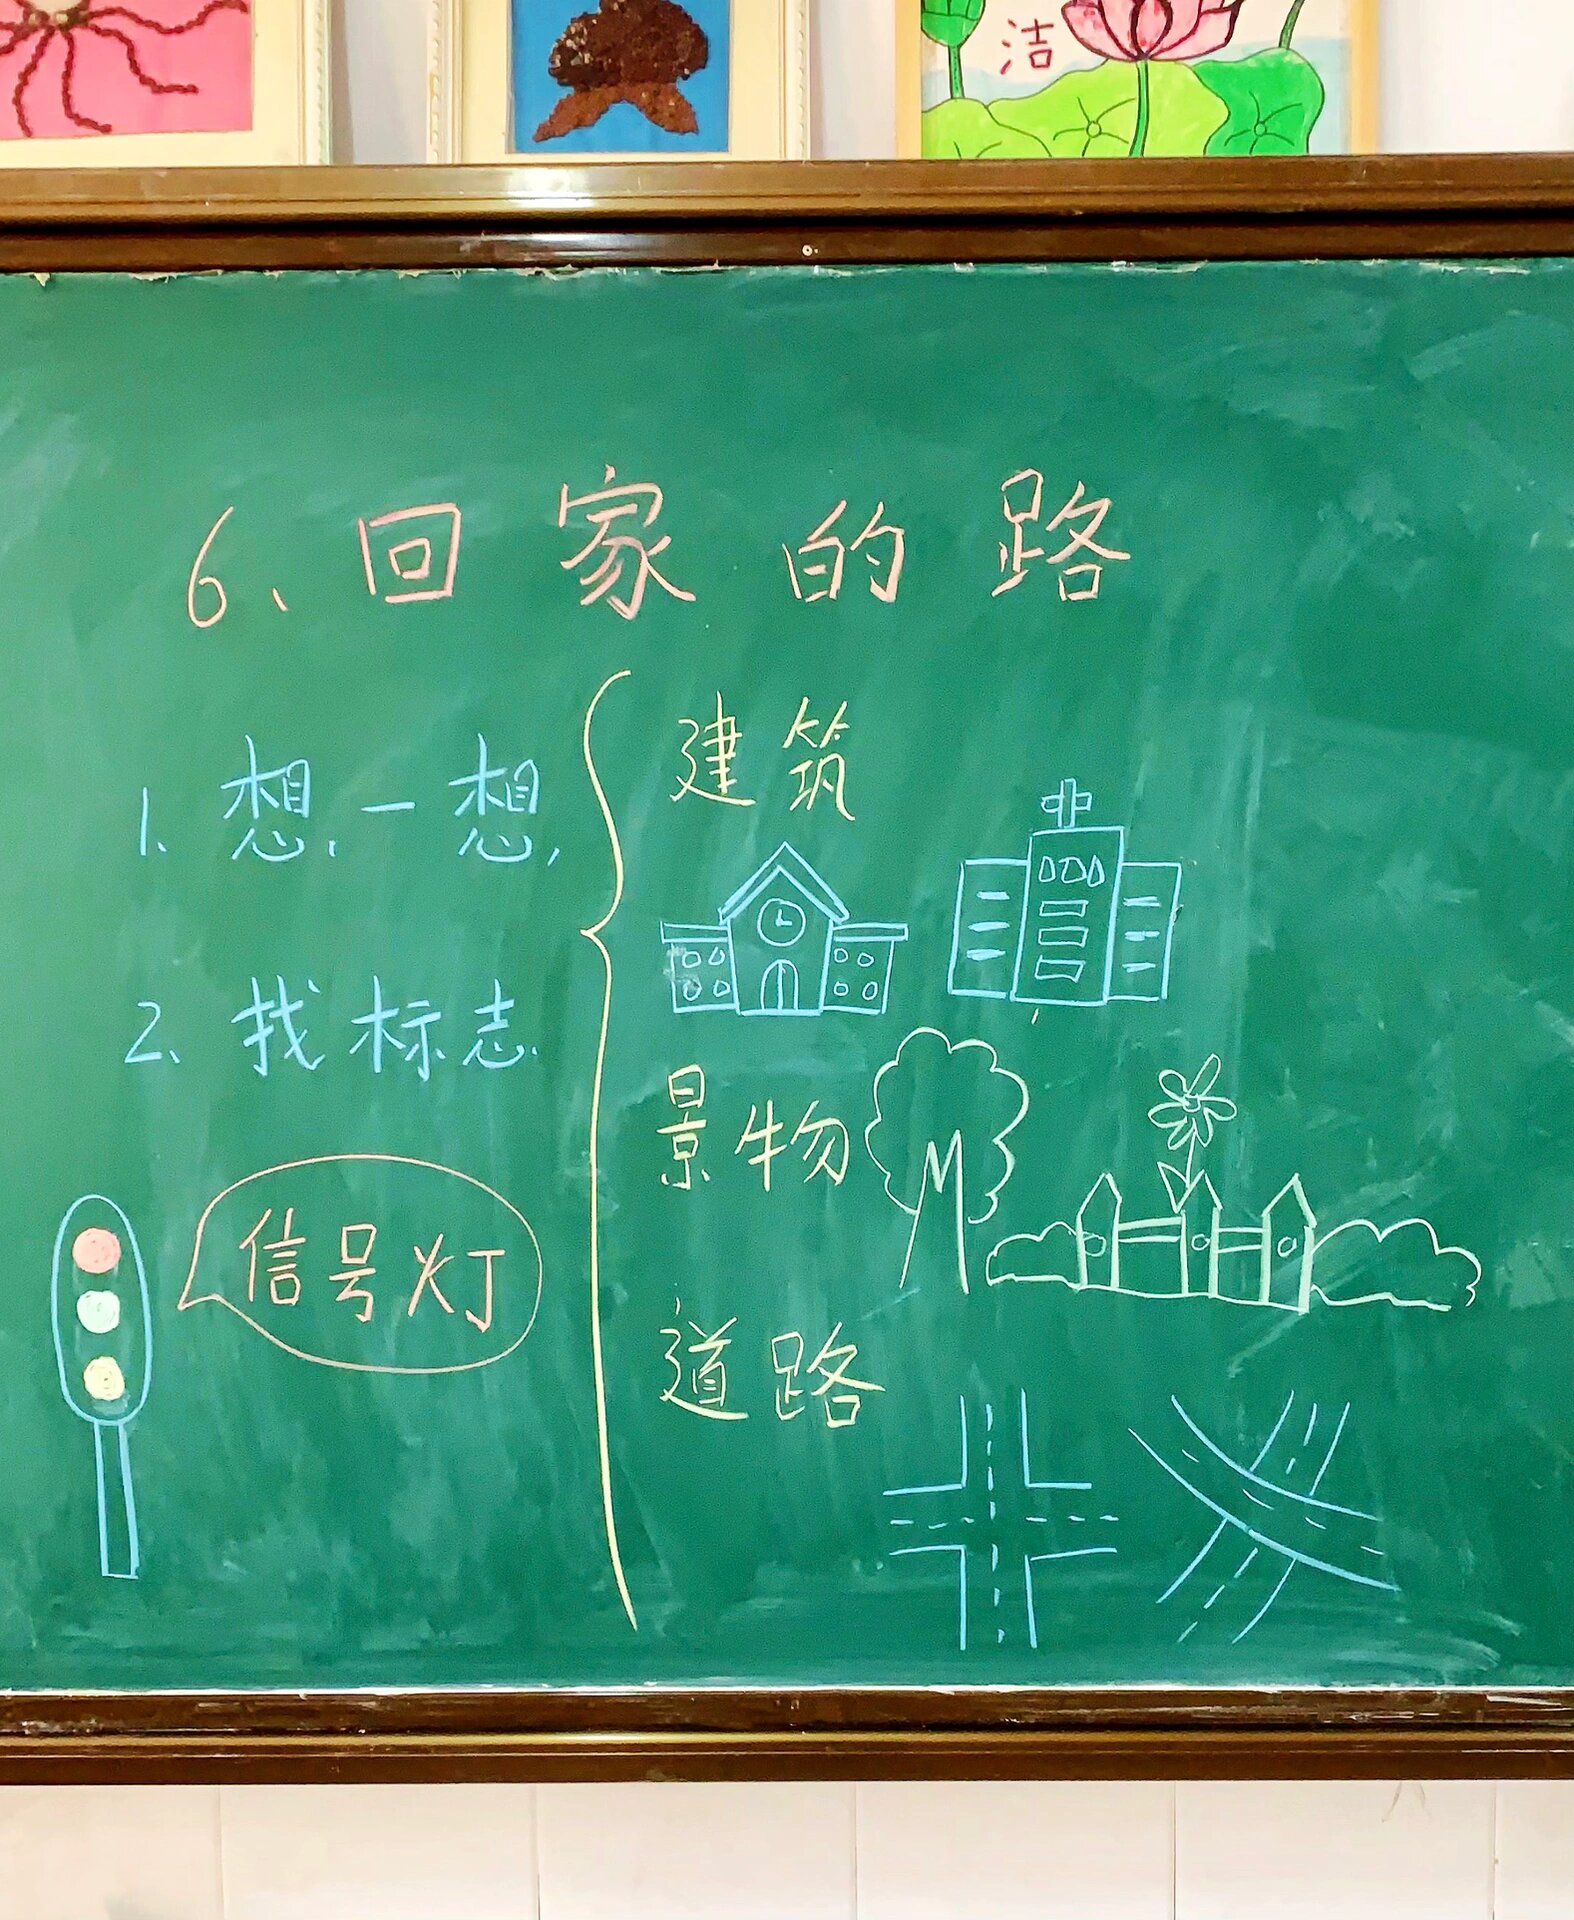 洁
6、回家的路
1、想、一想,
2、找标志.
信号灯
建筑
景物
道路